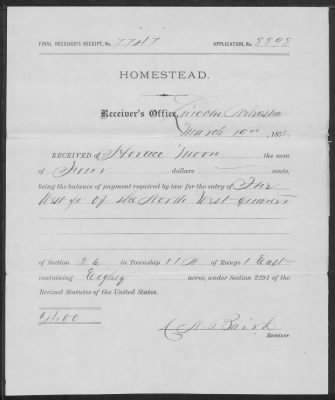 FINAL RECEIVER'S RECEIPT, No. 7747 APPLICATION, No. 8898
HOMESTEAD.
Receiver's Office, Lincoln Nebraska
March 10th, 187
RECEIVED of Horace Moon the sum
of Four dollars cents,
being the balance of payment required by law for the entry of The
West ½ of the North West quarter
of Section 26 in Township 11 N of Range 1 East
containing Eighty acres, under Section 2291 of the
Revised Statutes of the United States.
$4.00
Baird
Receiver.